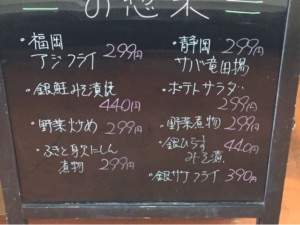 お惣菜
・福岡
アジフライ 299円
・銀鮭みそ漬焼
440円
・野菜炒め 299円
・ふきと身欠にしん
煮物 299円
・静岡 299円
サバ竜田揚
・ポテトサラダ
299円
・野菜煮物 299円
・銀ひらす 440円
みそ漬
・銀サケフライ 390円